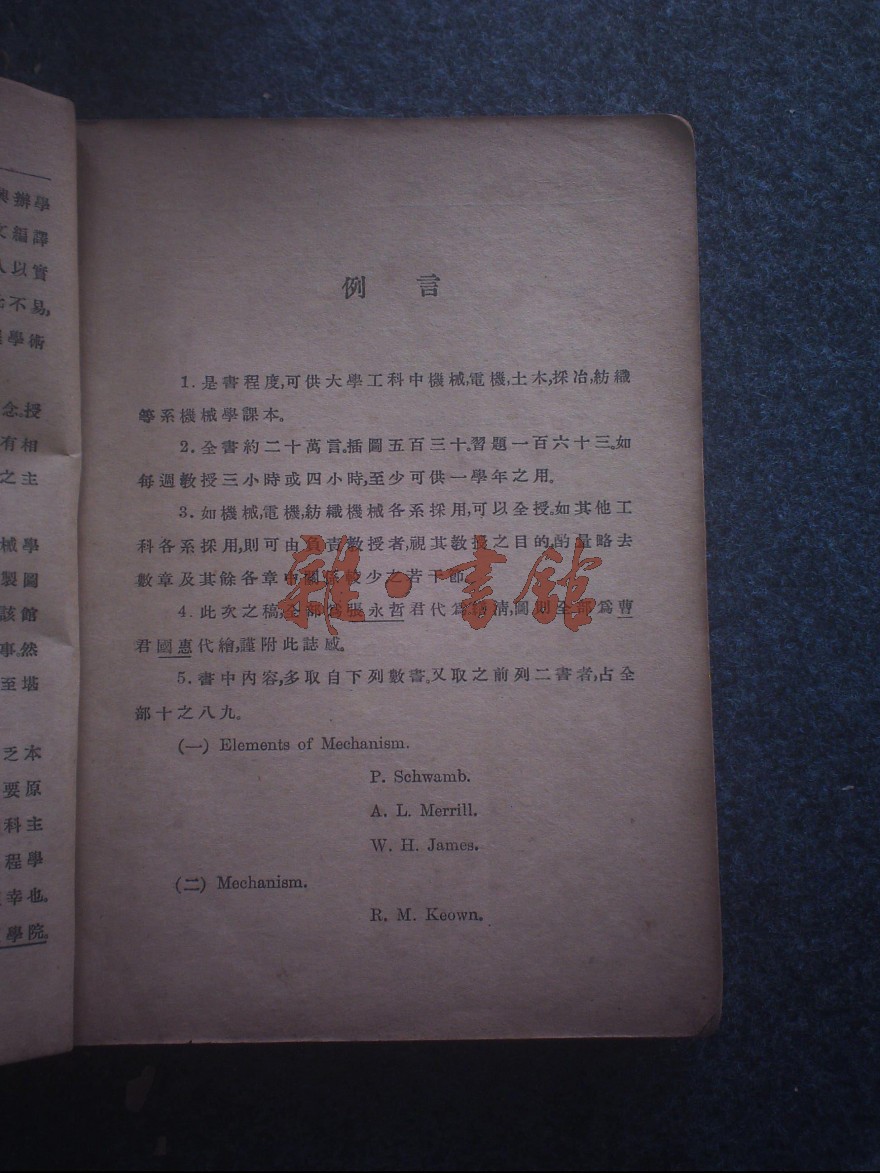 興辦學
文編譯
人以實
不易,
學術
念授
有相
之主
械學
製圖
該館
事.然
至堪
乏本
要原
科主
程學
幸也.
學院.
例言
1. 是書程度,可供大學工科中機械,電機,土木,採冶,紡織
等系機械學課本。
2. 全書約二十萬言。插圖五百三十。習題一百六十三。如
每週教授三小時或四小時,至少可供一學年之用。
3. 如機械,電機,紡織機械各系採用,可以全授。如其他工
科各系採用,則可由負責教授者,視其教授之目的,酌量略去
數章及其餘各章中關係較少之若干節。
4. 此次之稿,全部為張永哲君代為清,圖則全部為曹
君國惠代繪,謹附此誌感。
5. 書中內容,多取自下列數書。又取之前列二書者,占全
部十之八九。
(一) Elements of Mechanism.
P. Schwamb.
A. L. Merrill.
W. H. James.
(二) Mechanism.
R. M. Keown.
雜·書館